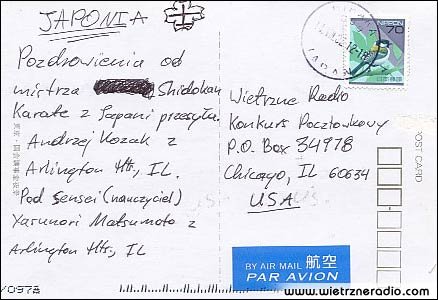 JAPONIA
Pozdrowienia od
mistrza Shidokan
Karate z Japani przesyła
Andrzej Kozak z
Arlington Hts, IL.
Pod sensei (nauczyciel)
Yasunori Matsumoto z
Arlington Hts, IL
NIPPON
70
日本郵便
JAPAN
Wietrzne Radio
Konkurs Pocztowkowy
P.O. Box 34978
Chicago, IL 60634
USA
POST CARD
航空
BY AIR MAIL
PAR AVION
www.wietrzneradio.com